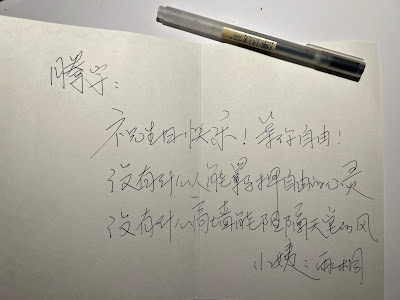 祝生日快乐!等你自由!
没有什么人能羁押自由的心灵
没有什么高墙能阻隔天空的风
小姨: